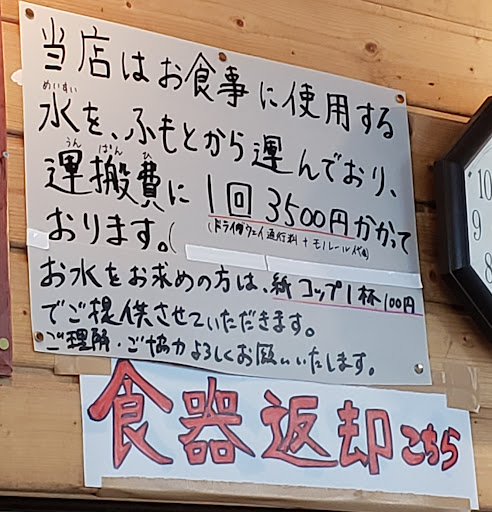 当店はお食事に使用する
めいすい
水を、ふもとから運んでおり、
うん ぱん ひ
運搬費に1回3500円かかって
(ドライブウェイ通行料+モノレール代)
おります。(
お水をお求めの方は、紙コップ1杯100円
でご提供させていただきます。
ご理解・ご協力よろしくお願いいたします。
食器返却こちら
10
9
8